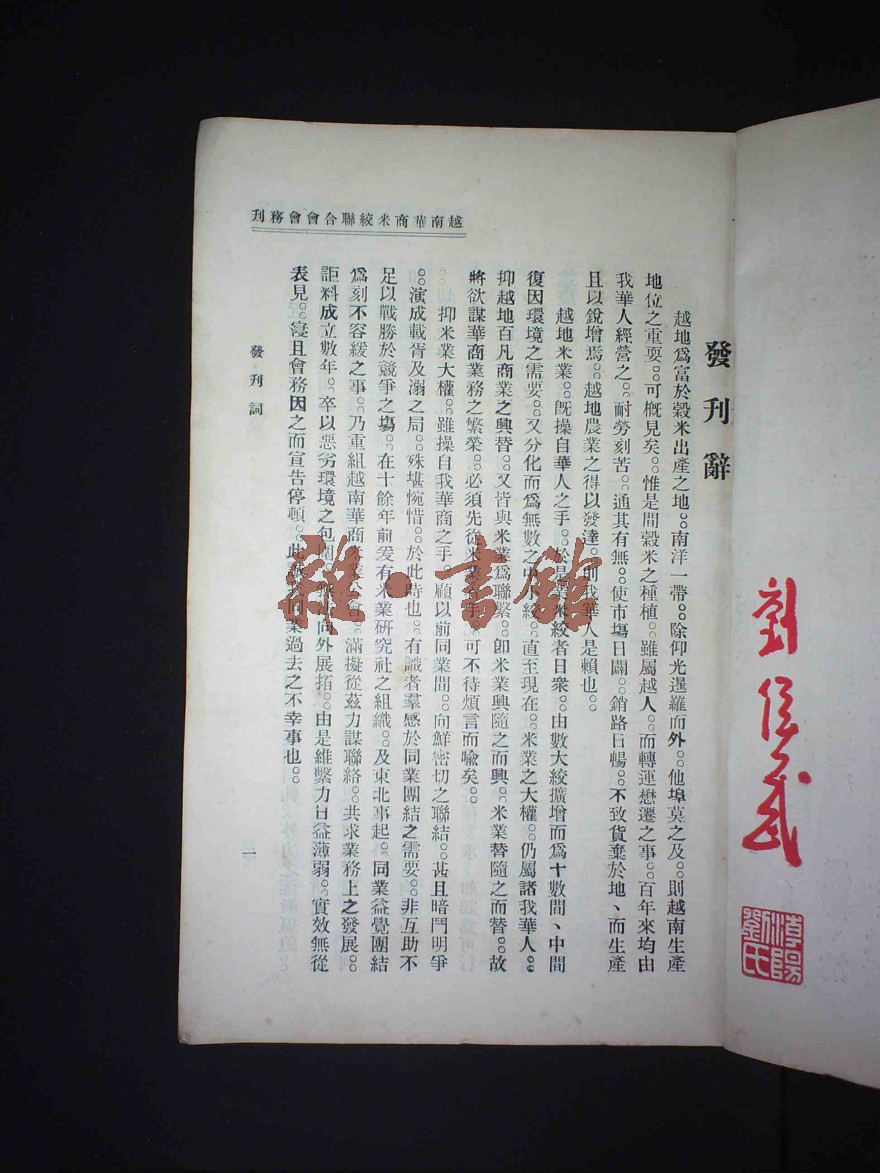 劉侯武
潯陽劉氏
越南華商米絞聯合會會務刊
發刊辭
越地爲富於穀米出產之地。。南洋一帶。。除仰光暹羅而外。。他埠莫之及。。則越南生產
地位之重要。。可概見矣。。惟是間穀米之種植。。雖屬越人。。而轉運懋遷之事。。百年來均由
我華人經營之。。耐勞刻苦。。通其有無。。使市場日闢。。銷路日暢。。不致貨棄於地、而生產
且以銳增焉。。越地農業之得以發達。。則我華人是賴也。。
越地米業。。既操自華人之手。。於是業米絞者日衆。。由數大絞擴增而爲十數間、中間
復因環境之需要。。又分化而爲無數之中小絞。。直至現在。。米業之大權。。仍屬諸我華人。。
抑越地百凡商業之興替。。又皆與米業爲聯繫。。卽米業興隨之而興。。米業替隨之而替。。故
將欲謀華商業務之繁榮。。必須先從米業着手。。可不待煩言而喩矣。。
抑米業大權。。雖操自我華商之手。。顧以前同業間。。向鮮密切之聯結。。甚且暗鬥明爭
。。演成載胥及溺之局。。殊堪惋惜。。於此時也。。有識者羣感於同業團結之需要。。非互助不
足以戰勝於競爭之場。。在十餘年前爰有米業研究社之組織。。及東北事起。。同業益覺團結
爲刻不容緩之事。。乃重組越南華商米業公會。。滿擬從茲力謀聯絡。。共求業務上之發展。。
詎料成立數年。。卒以惡劣環境之包圍。。無以向外展拓。。由是維繫力日益薄弱。。實效無從
表見。。寖且會務因之而宣告停頓。。此誠我同業過去之不幸事也。。
發刊詞
一
雜·書館